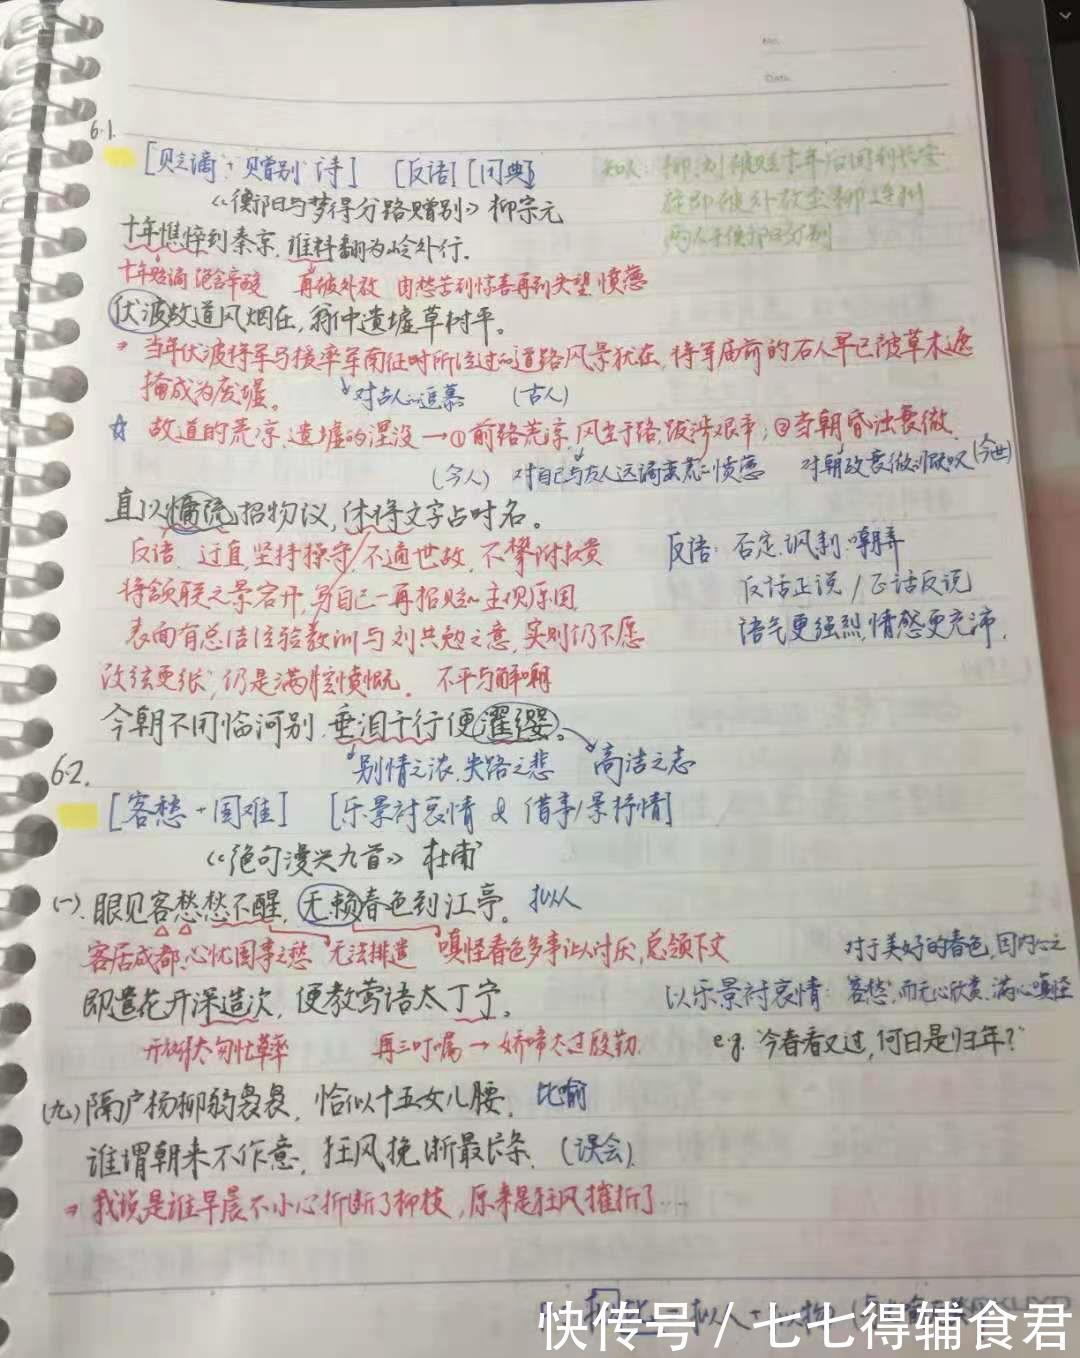 No.
Date
6.1.
[贬谪+赠别 诗] [反语] [用典]
《衡阳与梦得分路赠别》柳宗元
十年憔悴到秦京,谁料翻为岭外行。
十年贬谪 饱含辛酸 再被外放 由愁苦到惊喜再到失望 愤懑
伏波故道风烟在,翁仲遗墟草树平。
→ 当年伏波将军马援率军南征时所经过的道路风景犹在,将军庙前的石人早已被草木遮
掩成为废墟。 对古人的追慕 (古人)
☆ 故道的荒凉 遗墟的湮没 → ① 前路荒凉,风尘于路,跋涉艰辛;②当朝昏浊衰微
(今人) 对自己与友人远谪蛮荒的愤懑 对朝政衰微的慨叹 (今世)
直以慵疏招物议,休将文字占时名。
反语 迂直,坚持操守,不通世故,不攀附权贵
反语:否定.讽刺.嘲弄
将颔联之景宕开,写自己一再招贬的主观原因
反话正说/正话反说
表面有总结经验教训与刘共勉之意,实则仍不愿
语气更强烈,情感更充沛.
改弦更张,仍是满腔愤慨。 不平与自嘲
今朝不用临河别,垂泪千行便濯缨。
别情之浓.失路之悲 高洁之志
6.2.
[客愁+国难] [乐景衬哀情 & 借事/景抒情]
《绝句漫兴九首》 杜甫
(一).眼见客愁愁不醒,无赖春色到江亭。 拟人
客居成都.心忧国事之愁 无法排遣 嗔怪春色多事让人讨厌,总领下文
对于美好的春色,因内心之
即遣花开深造次,便教莺语太丁宁。
以乐景衬哀情:客愁,而无心欣赏.满心嗔怪
开得太匆忙草率 再三叮嘱 → 娇啼太过殷勤.
e.g. 今春看又过,何日是归年?
(九)隔户杨柳弱袅袅,恰似十五女儿腰. 比喻
谁谓朝来不作意,狂风挽断最长条. (误会).
→ 我说是谁早晨不小心折断了柳枝,原来是狂风摧折了……
快传号/七七得辅食君